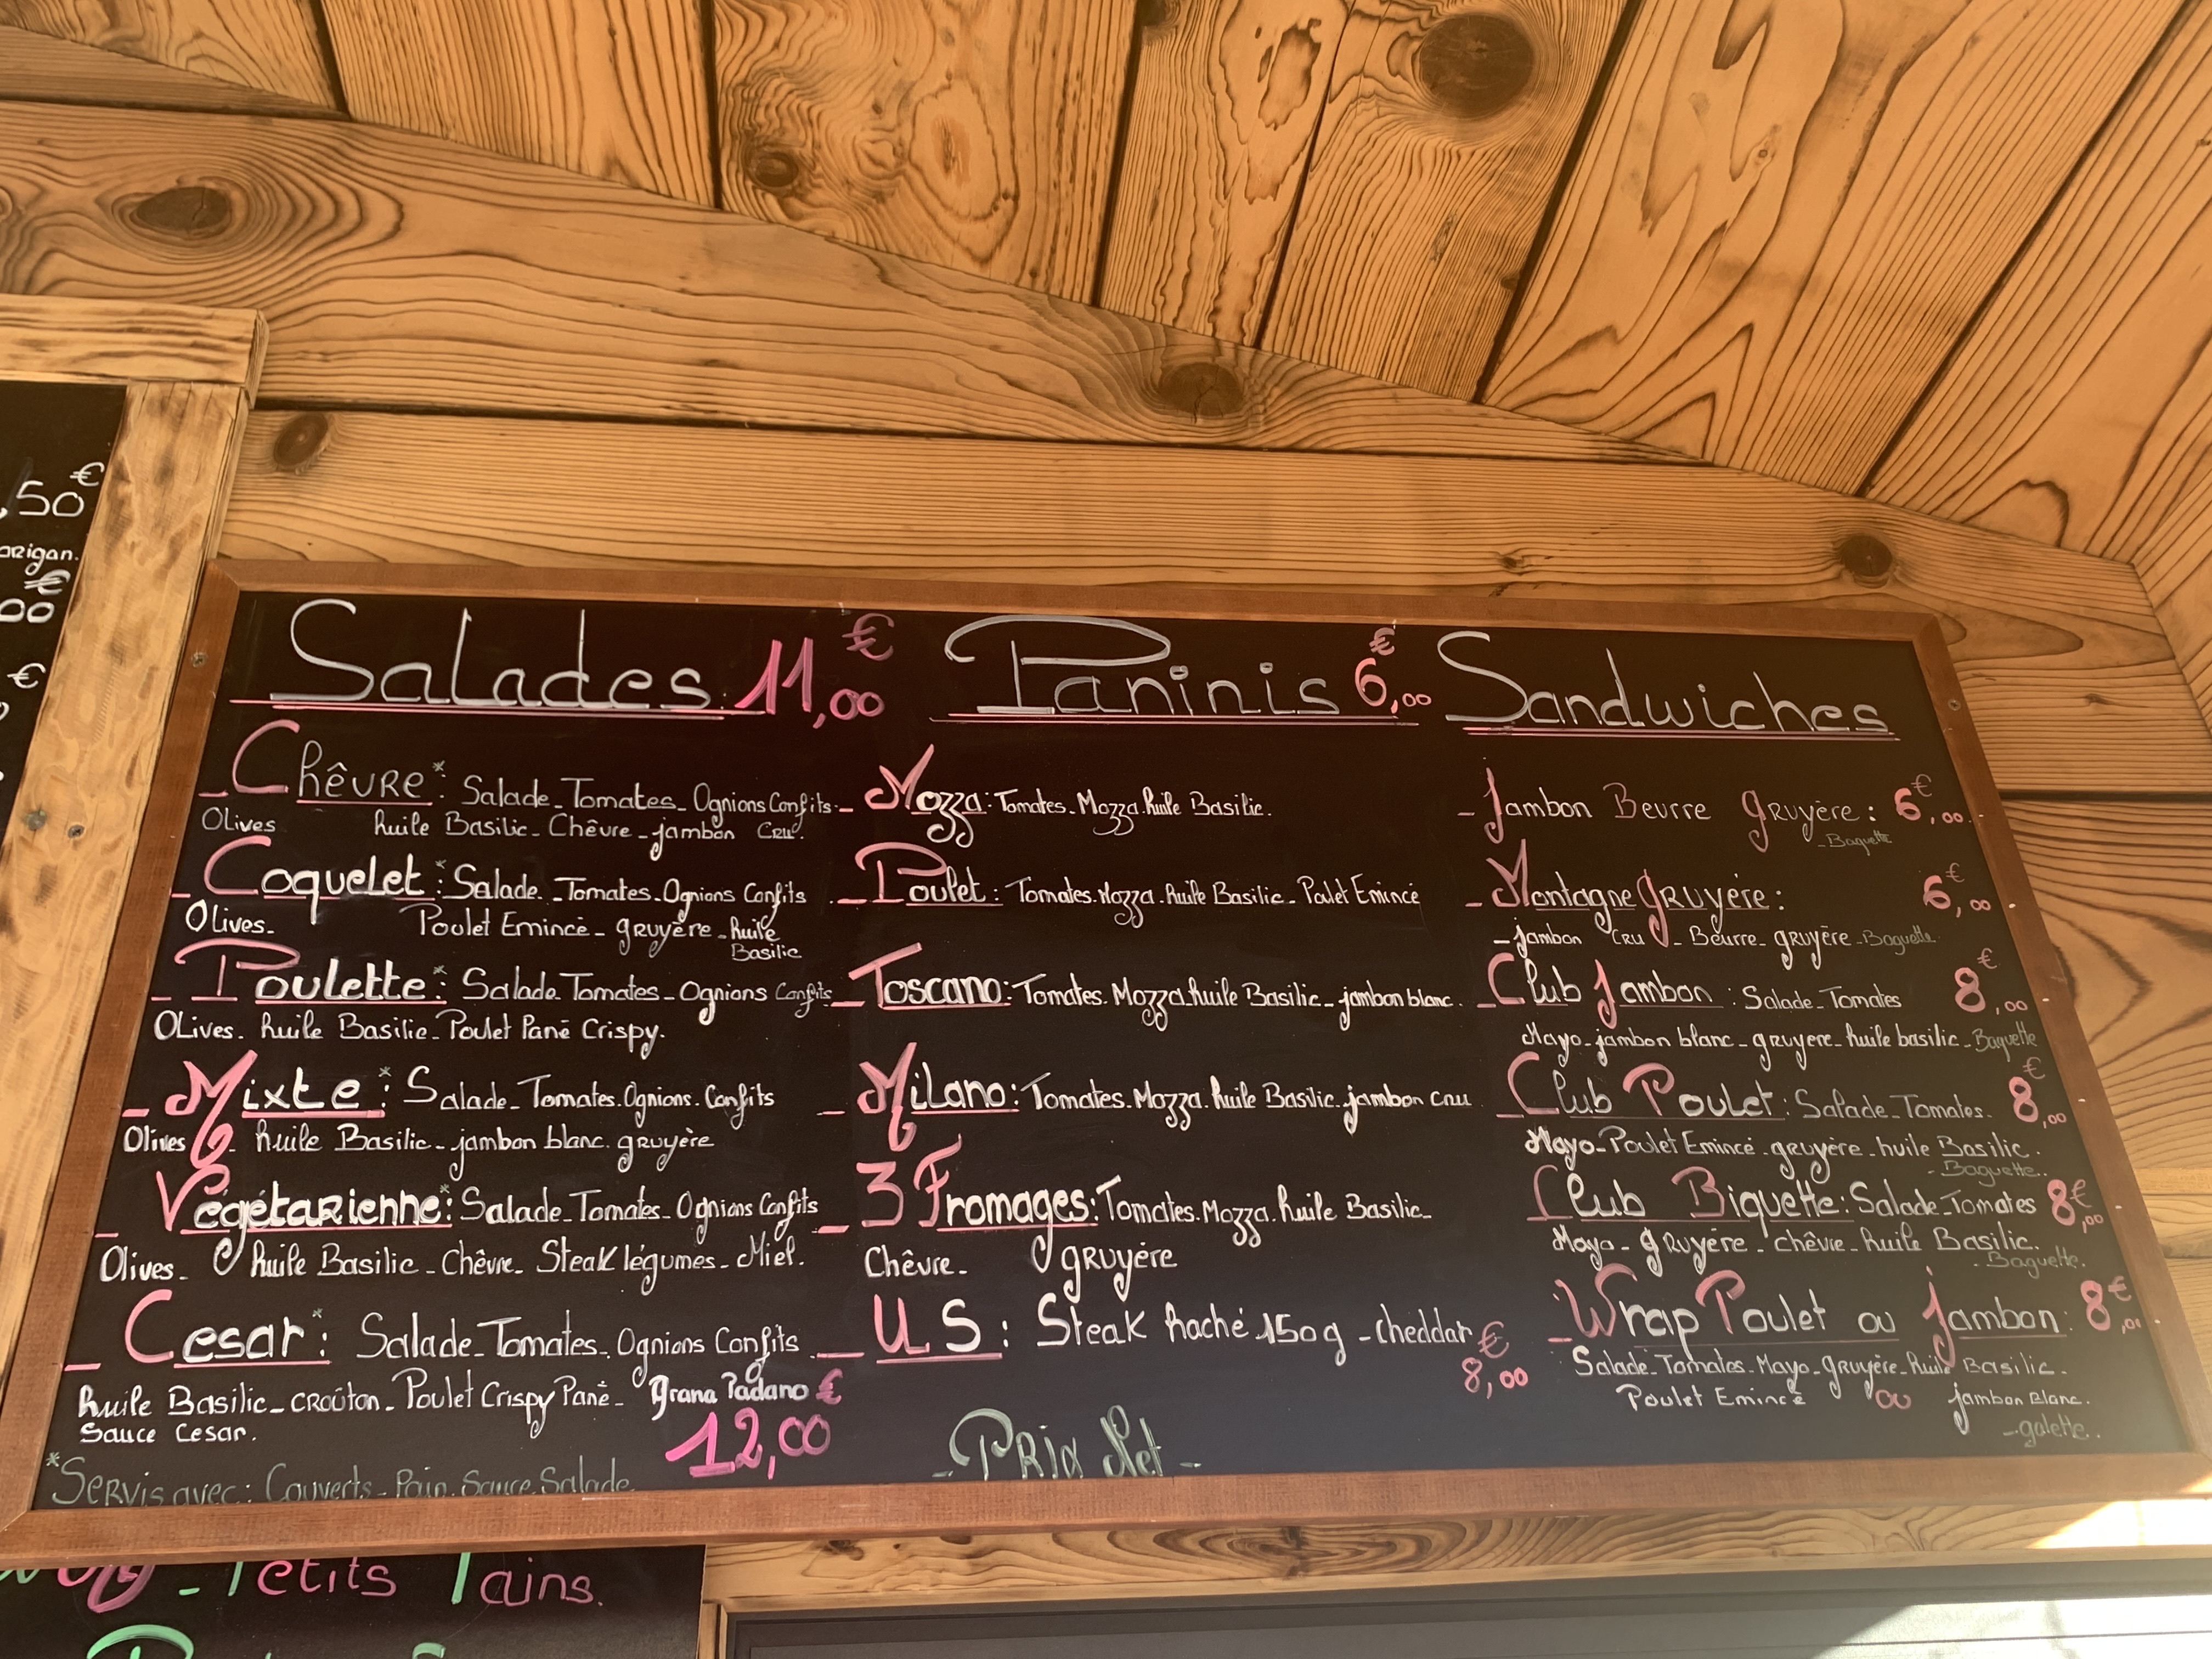 ,50€
origan.
€
00
€
Salades: 11,00€
- Chêvre*: Salade-Tomates-Ognions Confits.
Olives huile Basilic-Chêvre-jambon Cru.
- Coquelet*: Salade-Tomates-Ognions Confits
Olives- Poulet Emincé-gruyère-huile
Basilic
- Poulette*: Salade-Tomates-Ognions Confits
Olives. huile Basilic-Poulet Pané Crispy.
- Mixte*: Salade-Tomates-Ognions-Confits
Olives- huile Basilic-jambon blanc. gruyère
- Végétarienne*: Salade-Tomates-Ognions Confits
Olives- huile Basilic-Chêvre-Steak légumes-Miel.
- Cesar*: Salade-Tomates-Ognions Confits
huile Basilic-croûton-Poulet Crispy Pané-grana Padano
Sauce Cesar. 12,00€
*Servis avec: Couverts-Pain.Sauce Salade
Paninis 6,00€
- Mozza: Tomates-Mozza.huile Basilic.
- Poulet: Tomates.Mozza.huile Basilic-Poulet Emincé
- Toscano: Tomates.Mozza.huile Basilic-jambon blanc.
- Milano: Tomates.Mozza.huile Basilic.jambon cru
- 3 Fromages: Tomates.Mozza.huile Basilic-
Chêvre- gruyère
- US: Steak haché 150g-cheddar
8,00€
- Prix Net -
Sandwiches
- Jambon Beurre gruyère: 6,00€
-Baguette
- Montagne gruyère: 6,00€
-jambon cru-Beurre-gruyère-Baguette
- Club Jambon: Salade-Tomates 8,00€
Mayo-jambon blanc-gruyere-huile basilic-Baguette
- Club Poulet: Salade-Tomates. 8,00€
Mayo-Poulet Emincé-gruyère-huile Basilic.
-Baguette.
- Club Biquette: Salade-Tomates 8,00€
Mayo-gruyère-chêvre-huile Basilic.
-Baguette.
- Wrap Poulet ou Jambon: 8€
Salade-Tomates-Mayo-gruyère-huile Basilic.
Poulet Emincé ou jambon Blanc.
-galette.
- Petits Pains.